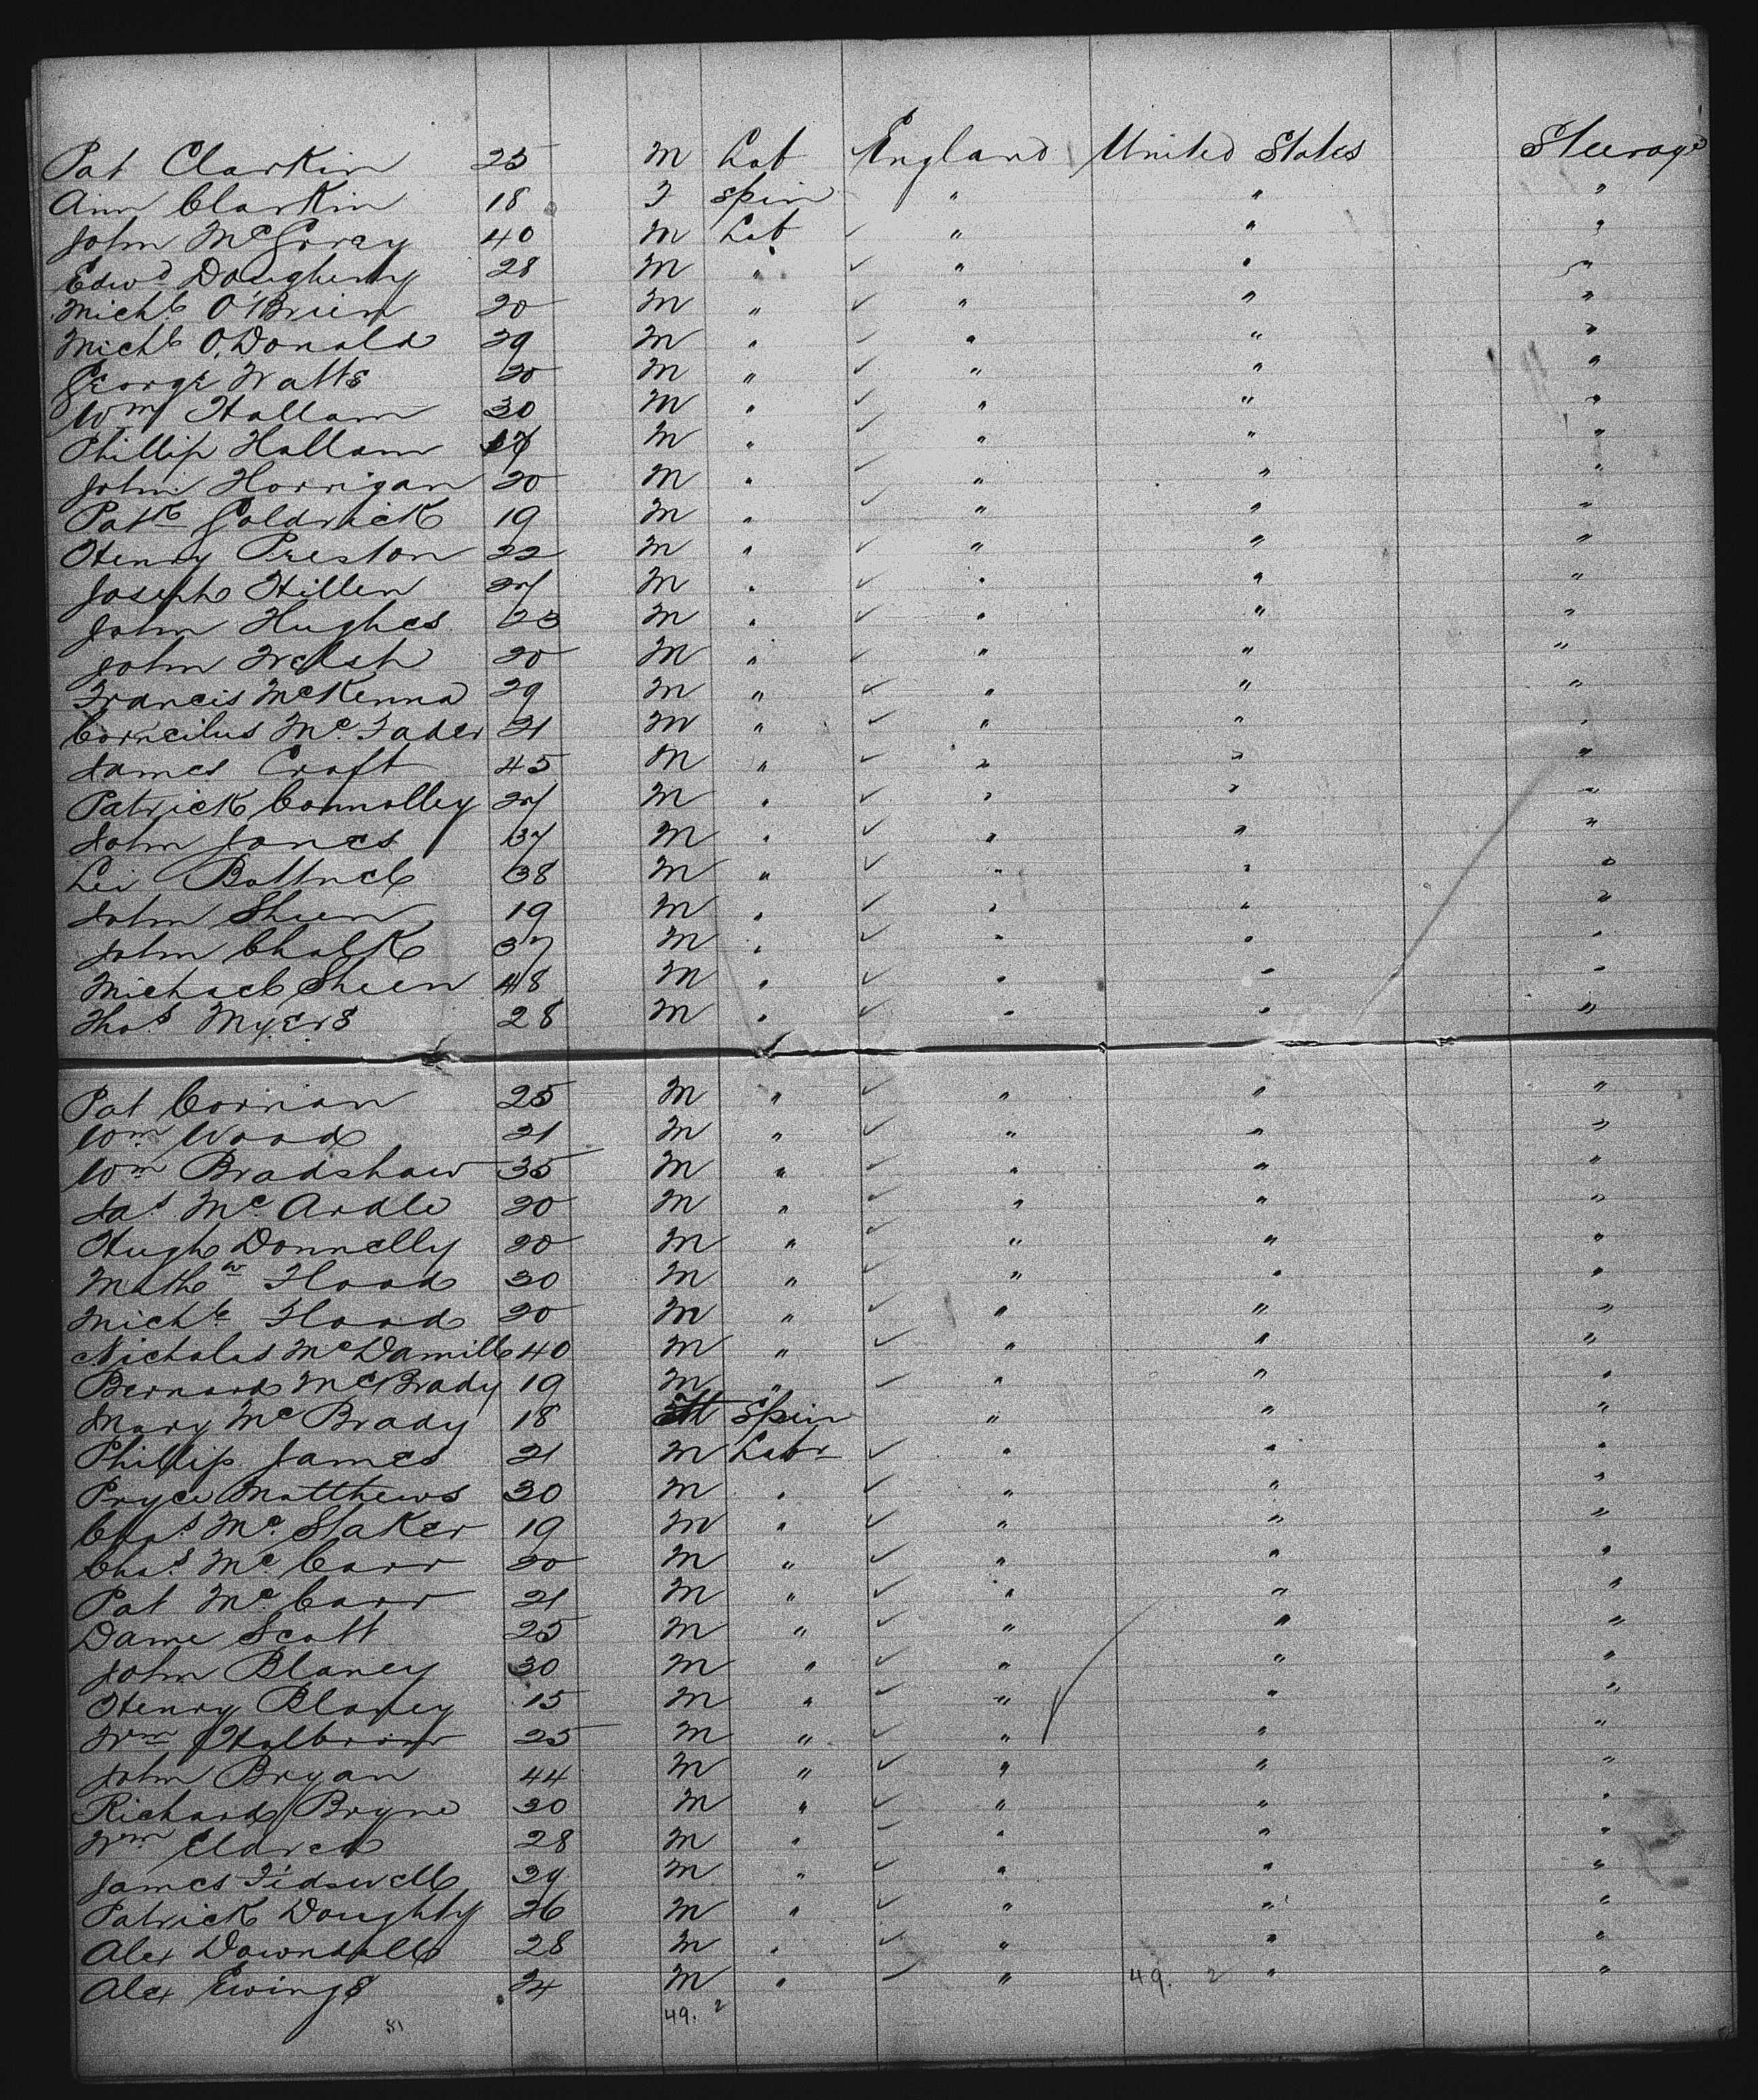 Pat Clarkin 25 M Lab England United States Steerage
Ann Clarkin 18 F Spin " " "
John McGorey 40 M Lab ✓ " " "
Edwd Dougherty 28 M " ✓ " " "
Michl O'Brien 20 M " ✓ " " "
Michl O'Donald 29 M " ✓ " " "
George Watts 20 M " ✓ " " "
Wm Hallam 30 M " ✓ " " "
Phillip Hallam M " ✓ " " "
John Horrigan 20 M " ✓ " " "
Patk Goldrick 19 M " ✓ " " "
Henry Preston 22 M " ✓ " " "
Joseph Hillen 27 M " ✓ " " "
John Hughes 23 M " ✓ " " "
John Welsh 20 M " ✓ " " "
Francis McKenna 29 M " ✓ " " "
Corneilus Mc Fader 21 M " ✓ " " "
James Croft 45 M " ✓ " " "
Patrick Connolley 27 M " ✓ " " "
John Jones 37 M " ✓ " " "
Lei 38 M " ✓ " " "
John Sheen 19 M " ✓ " " "
John Chalk 37 M " ✓ " " "
Michael Sheen 48 M " ✓ " " "
Thos Myers 28 M " ✓ " " "
Pat Cornan 25 M " ✓ " " "
Wm Wood 21 M " ✓ " " "
Wm Bradshaw 35 M " ✓ " " "
Jas Mc Ardle 20 M " ✓ " " "
Hugh Donnelly 20 M " ✓ " " "
Mathw Flood 30 M " ✓ " " "
Michl Flood 20 M " ✓ " " "
Nicholas McDamill 40 M " ✓ " " "
Bernard McBrady 19 M " ✓ " " "
Mary Mc Brady 18 Spin " " "
Phillip James 21 M Labr ✓ " " "
Pryce Matthews 30 M " ✓ " " "
Chas Mc Staker 19 M " ✓ " " "
Chas Mc Carr 20 M " ✓ " " "
Pat Mc Carr 21 M " ✓ " " "
Dame Scott 25 M " ✓ " " "
John Blaney 30 M " ✓ " " "
Henry Blaney 15 M " ✓ " " "
Wm 25 M " ✓ " " "
John Bryan 44 M " ✓ " " "
Richard Bryne 30 M " ✓ " " "
Wm Eldred 28 M " ✓ " " "
James Tidswell 29 M " ✓ " " "
Patrick Doughty 26 M " ✓ " " "
Alex Downdall 28 M " ✓ " " "
Alex Ewings 24 M " ✓ " 49. 2 " "
51 49. 2